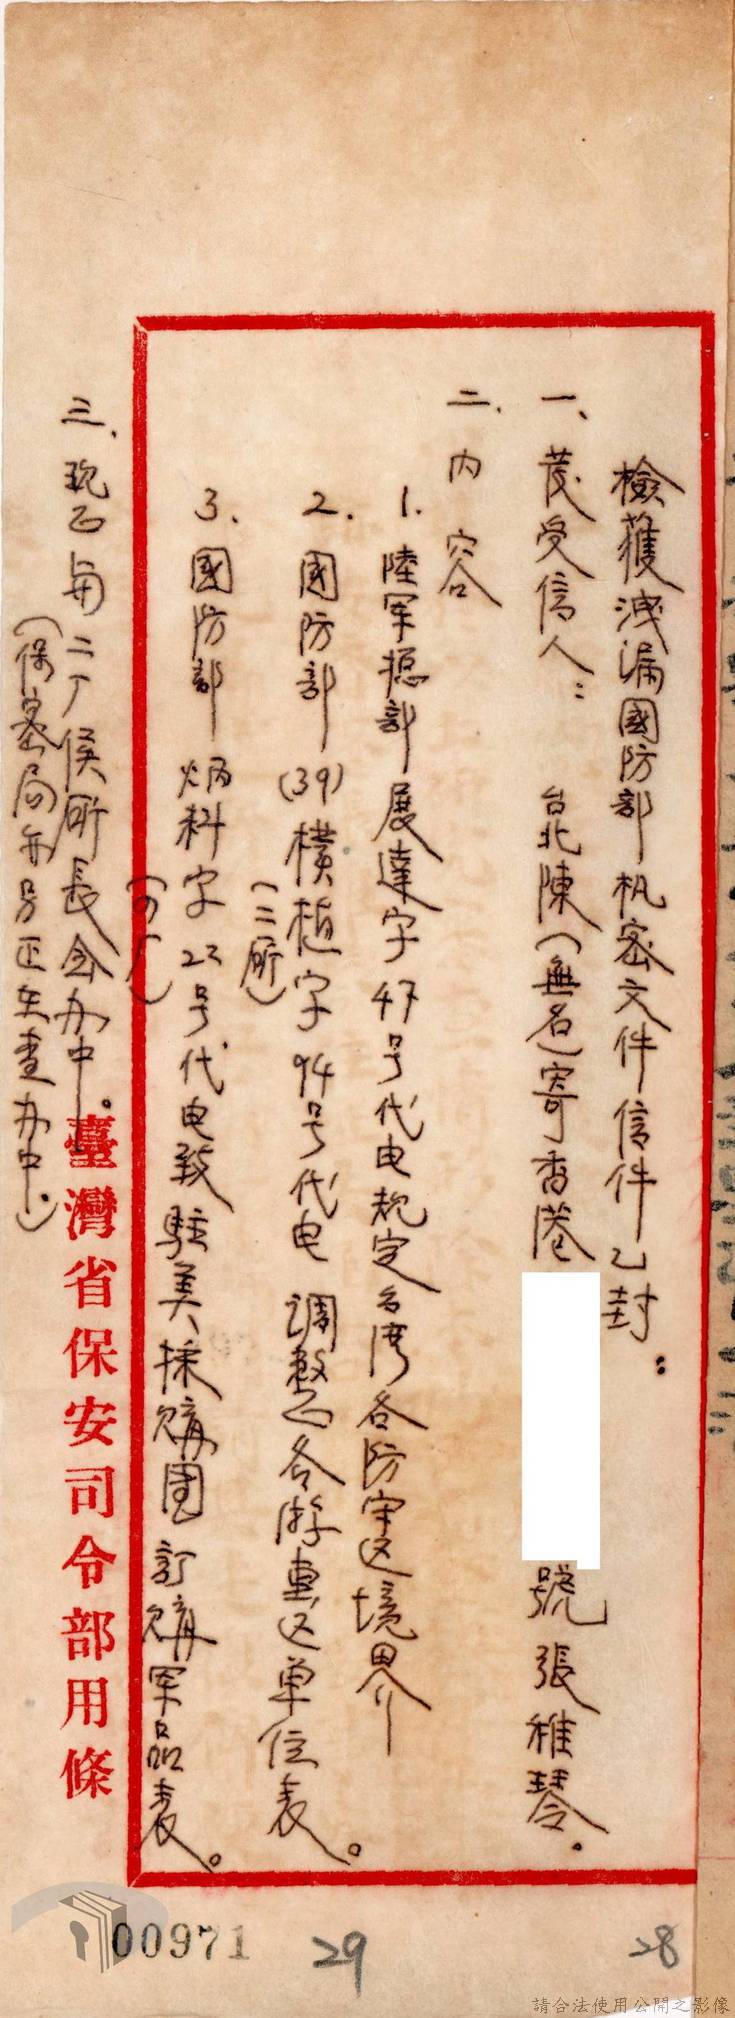 檢獲洩漏國防部机密文件信件乙封：
一、發受信人：台北陳（無名）寄香港號張稚琴。
二、內容
1.陸軍總部展達字47号代电規定台湾各防守区境界
2.國防部(39)橫植字94号代电調整各游击区單位表。
（二所）
3.國防部炳科字23号代电致駐美採購團訂購军品表。
三、現正与二厂侯所長会办中。
（保密局亦另正在查办中。）
臺灣省保安司令部用條
00971
29
28
請合法使用公開之影像